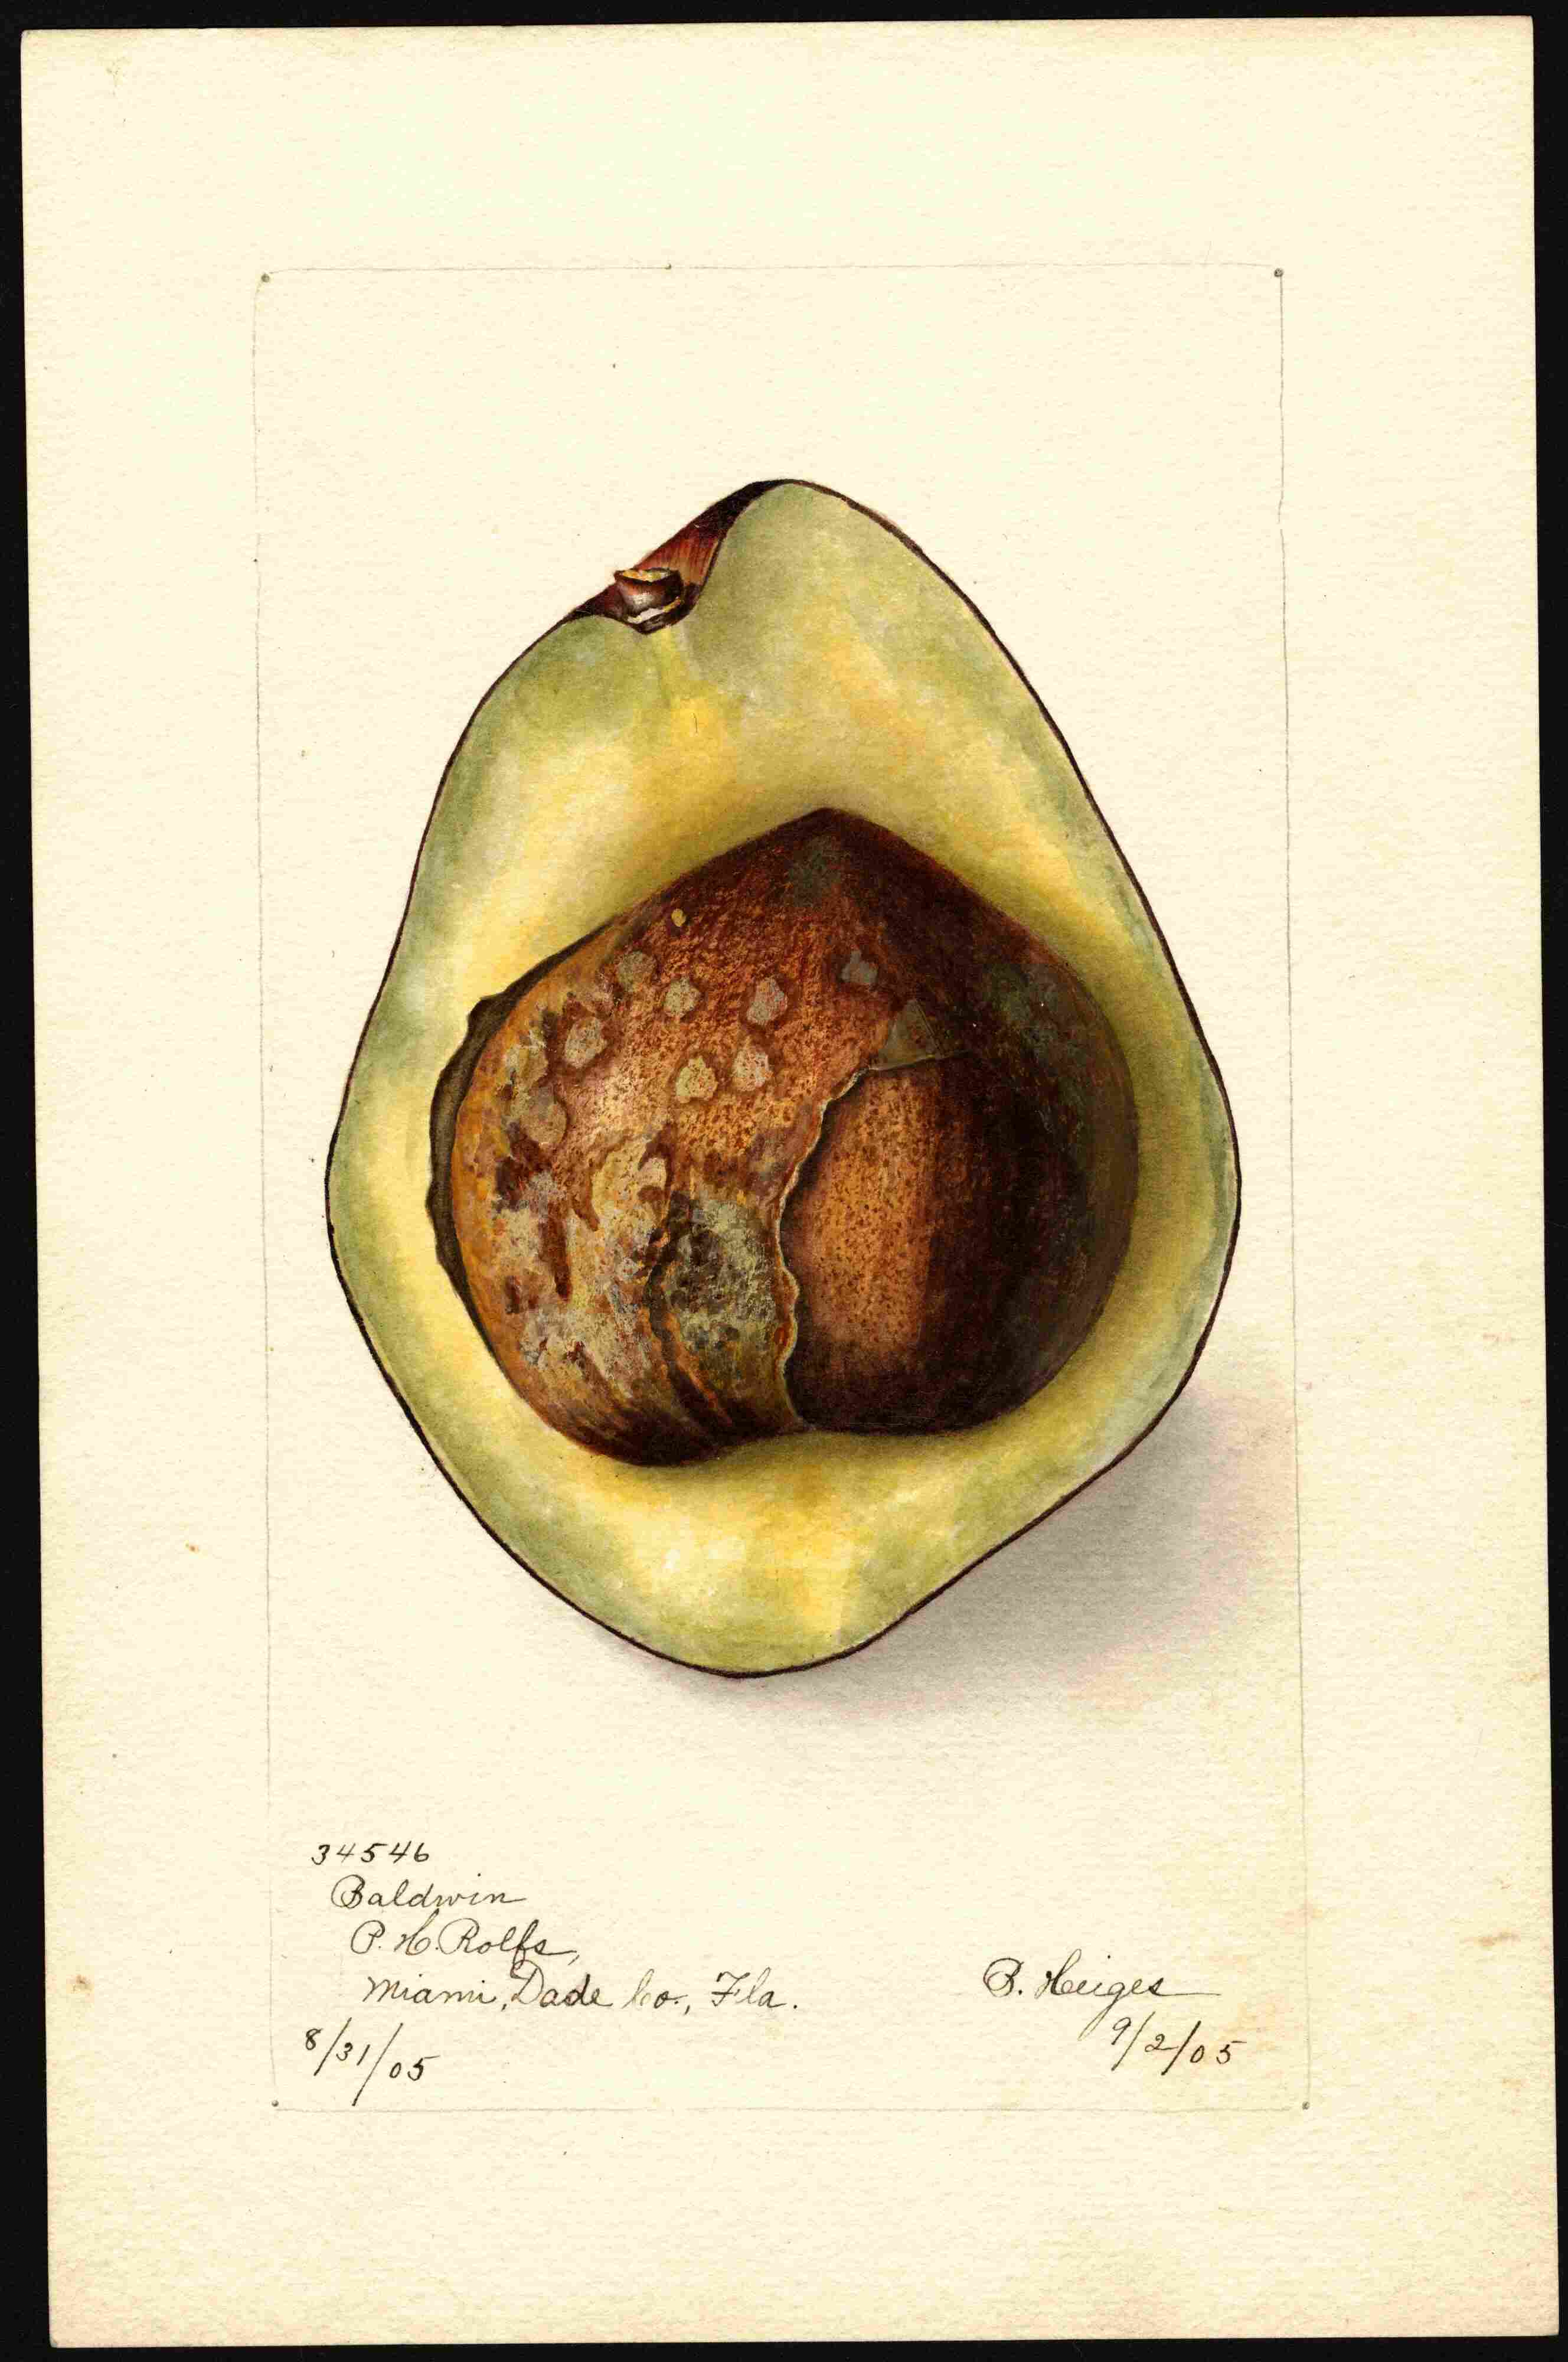 34546
Baldwin
P. H. Rolfs,
Miami, Dade Co., Fla.
8/31/05
B. Heiges
9/2/05